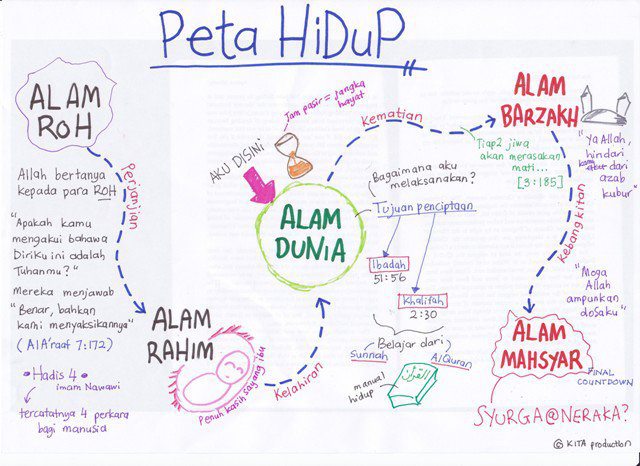 Peta HiDuP
ALAM
ROH
Allah bertanya
kepada para ROH
"Apakah kamu
mengakui bahawa
Diriku ini adalah
Tuhanmu?"
Mereka menjawab
"Benar, bahkan
kami menyaksikannya"
(Al A'raaf 7:172)
• Hadis 4 •
imam Nawawi
tercatatnya 4 perkara
bagi manusia
Perjanjian
ALAM
RAHIM
Penuh kasih sayang ibu
Kelahiran
AKU DISINI
Jam pasir = jangka
hayat
ALAM
DUNIA
Kematian
Bagaimana aku
melaksanakan?
Tujuan penciptaan
Ibadah
51:56
Khalifah
2:30
Belajar dari
Sunnah
Al Quran
manual
hidup
القرآن
Tiap2 jiwa
akan merasakan
mati...
[3:185]
ALAM
BARZAKH
"Ya Allah,
hindari
kami dari
azab
kubur
Kebangkitan
"Moga
Allah
ampunkan
dosaku"
ALAM
MAHSYAR
FINAL
COUNTDOWN
SYURGA@NERAKA?
© KITA production